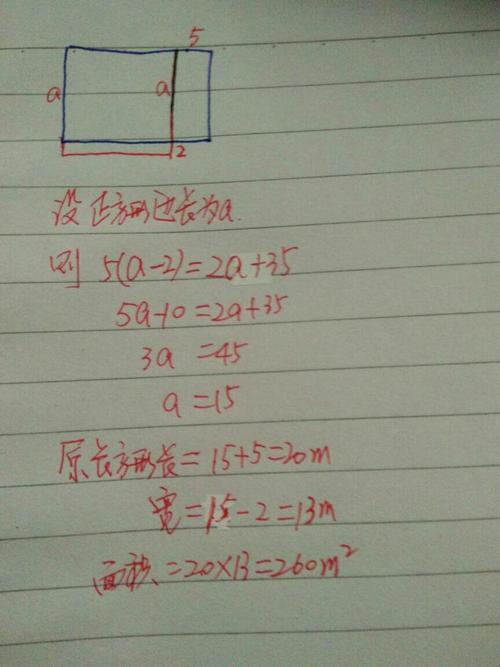 5
a a
2
设正方形边长为a.
则 5(a-2)=2a+35
5a-10=2a+35
3a=45
a=15
原长方形长=15+5=20m
宽=15-2=13m
面积=20×13=260m²